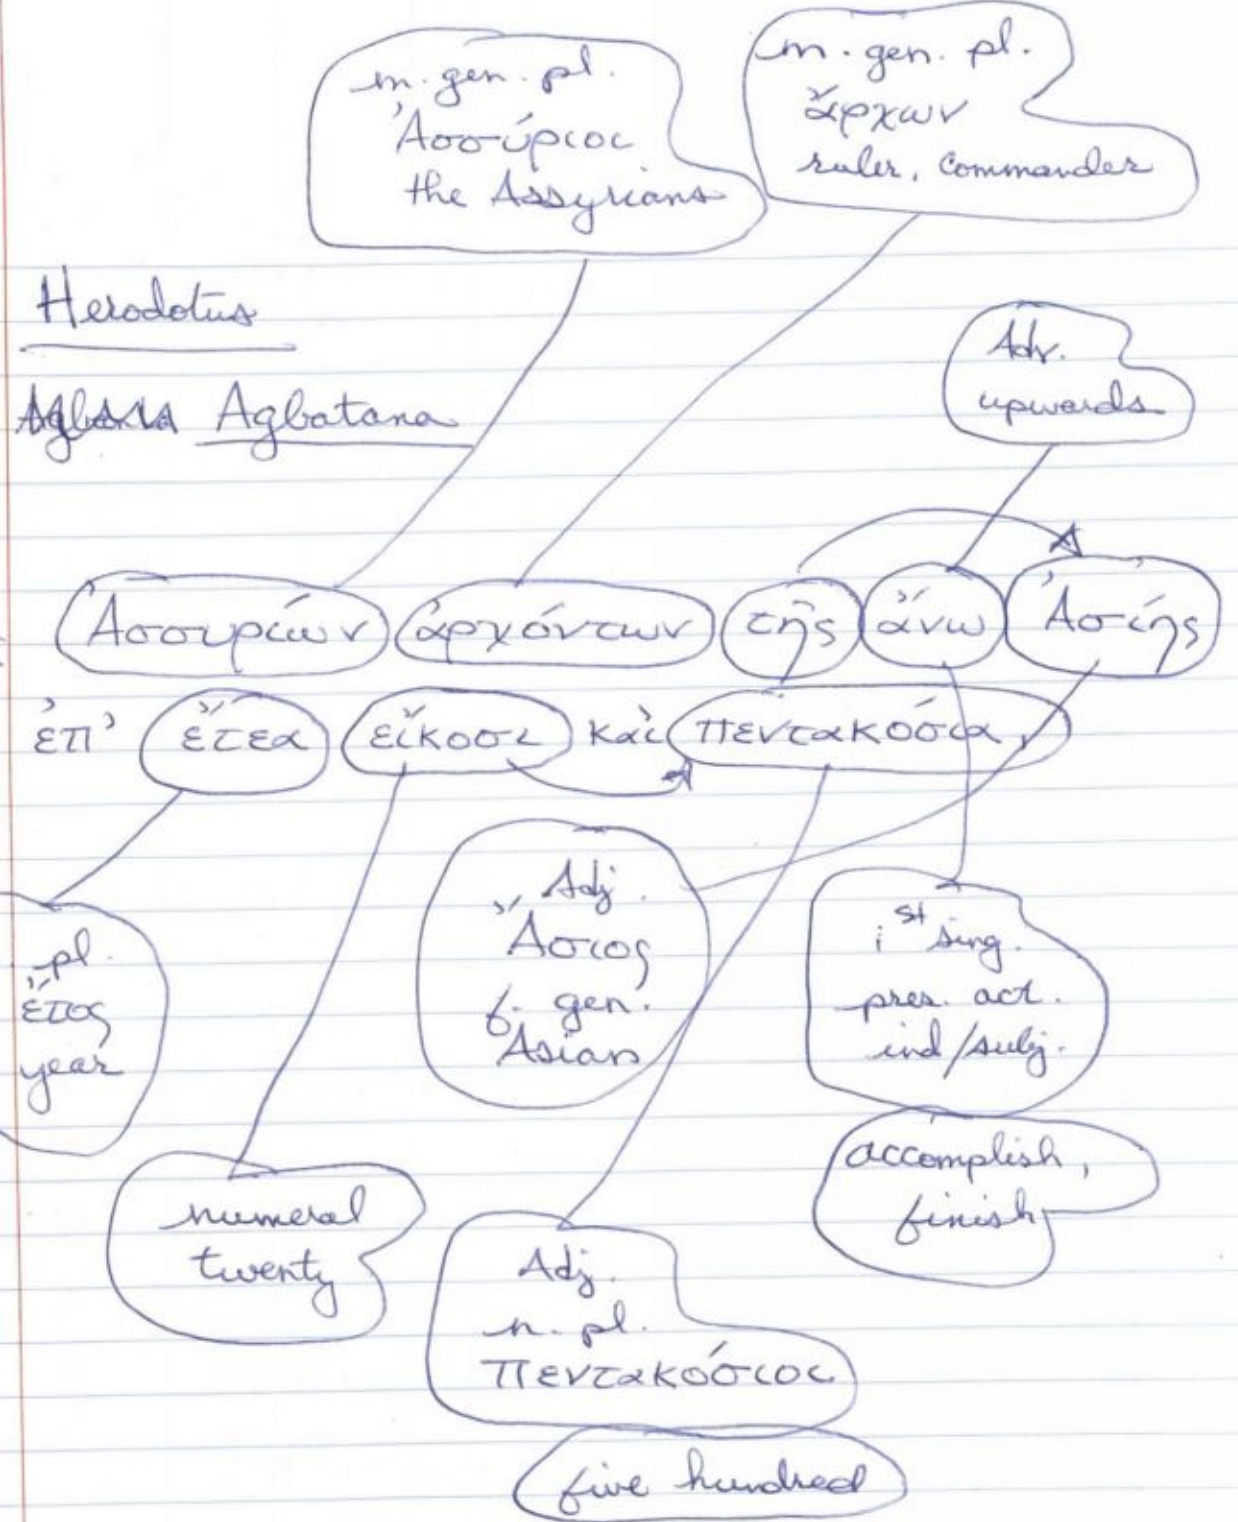 m. gen. pl.
Ἀσσύριοι
the Assyrians
m. gen. pl.
ἄρχων
ruler, commander
Herodotus
Agbatana
Adv.
upwards
Ἀσσυρίων ἀρχόντων τῆς ἄνω Ἀσίης
ἐπ' ἔτεα εἴκοσι καὶ πεντακόσια,
pl.
ἔτος
year
Adj.
Ἄσιος
f. gen.
Asian
1st sing.
pres. act.
ind/subj.
accomplish,
finish
numeral
twenty
Adj.
n. pl.
πεντακόσιοι
five hundred